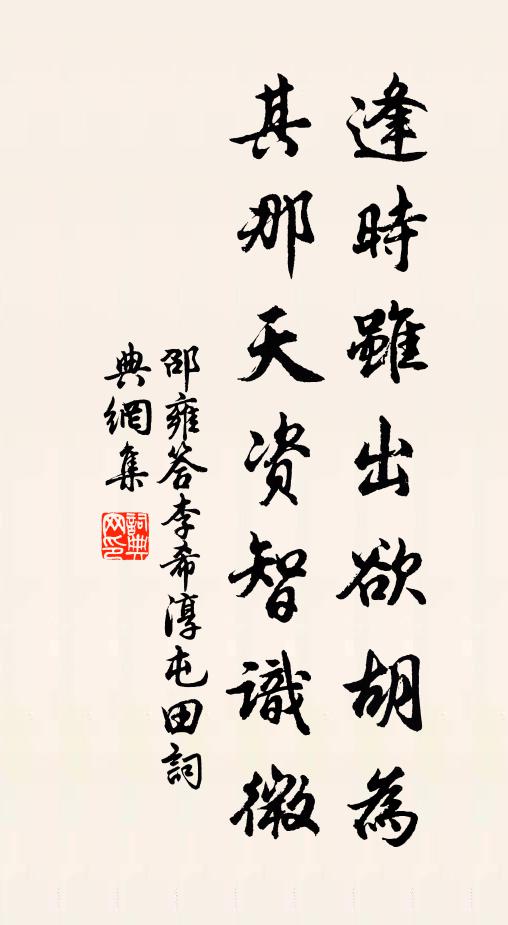 逢時雖出欲胡為
其那天資智識微
邵雍答李希淳屯田詞
典網集
詞典網印